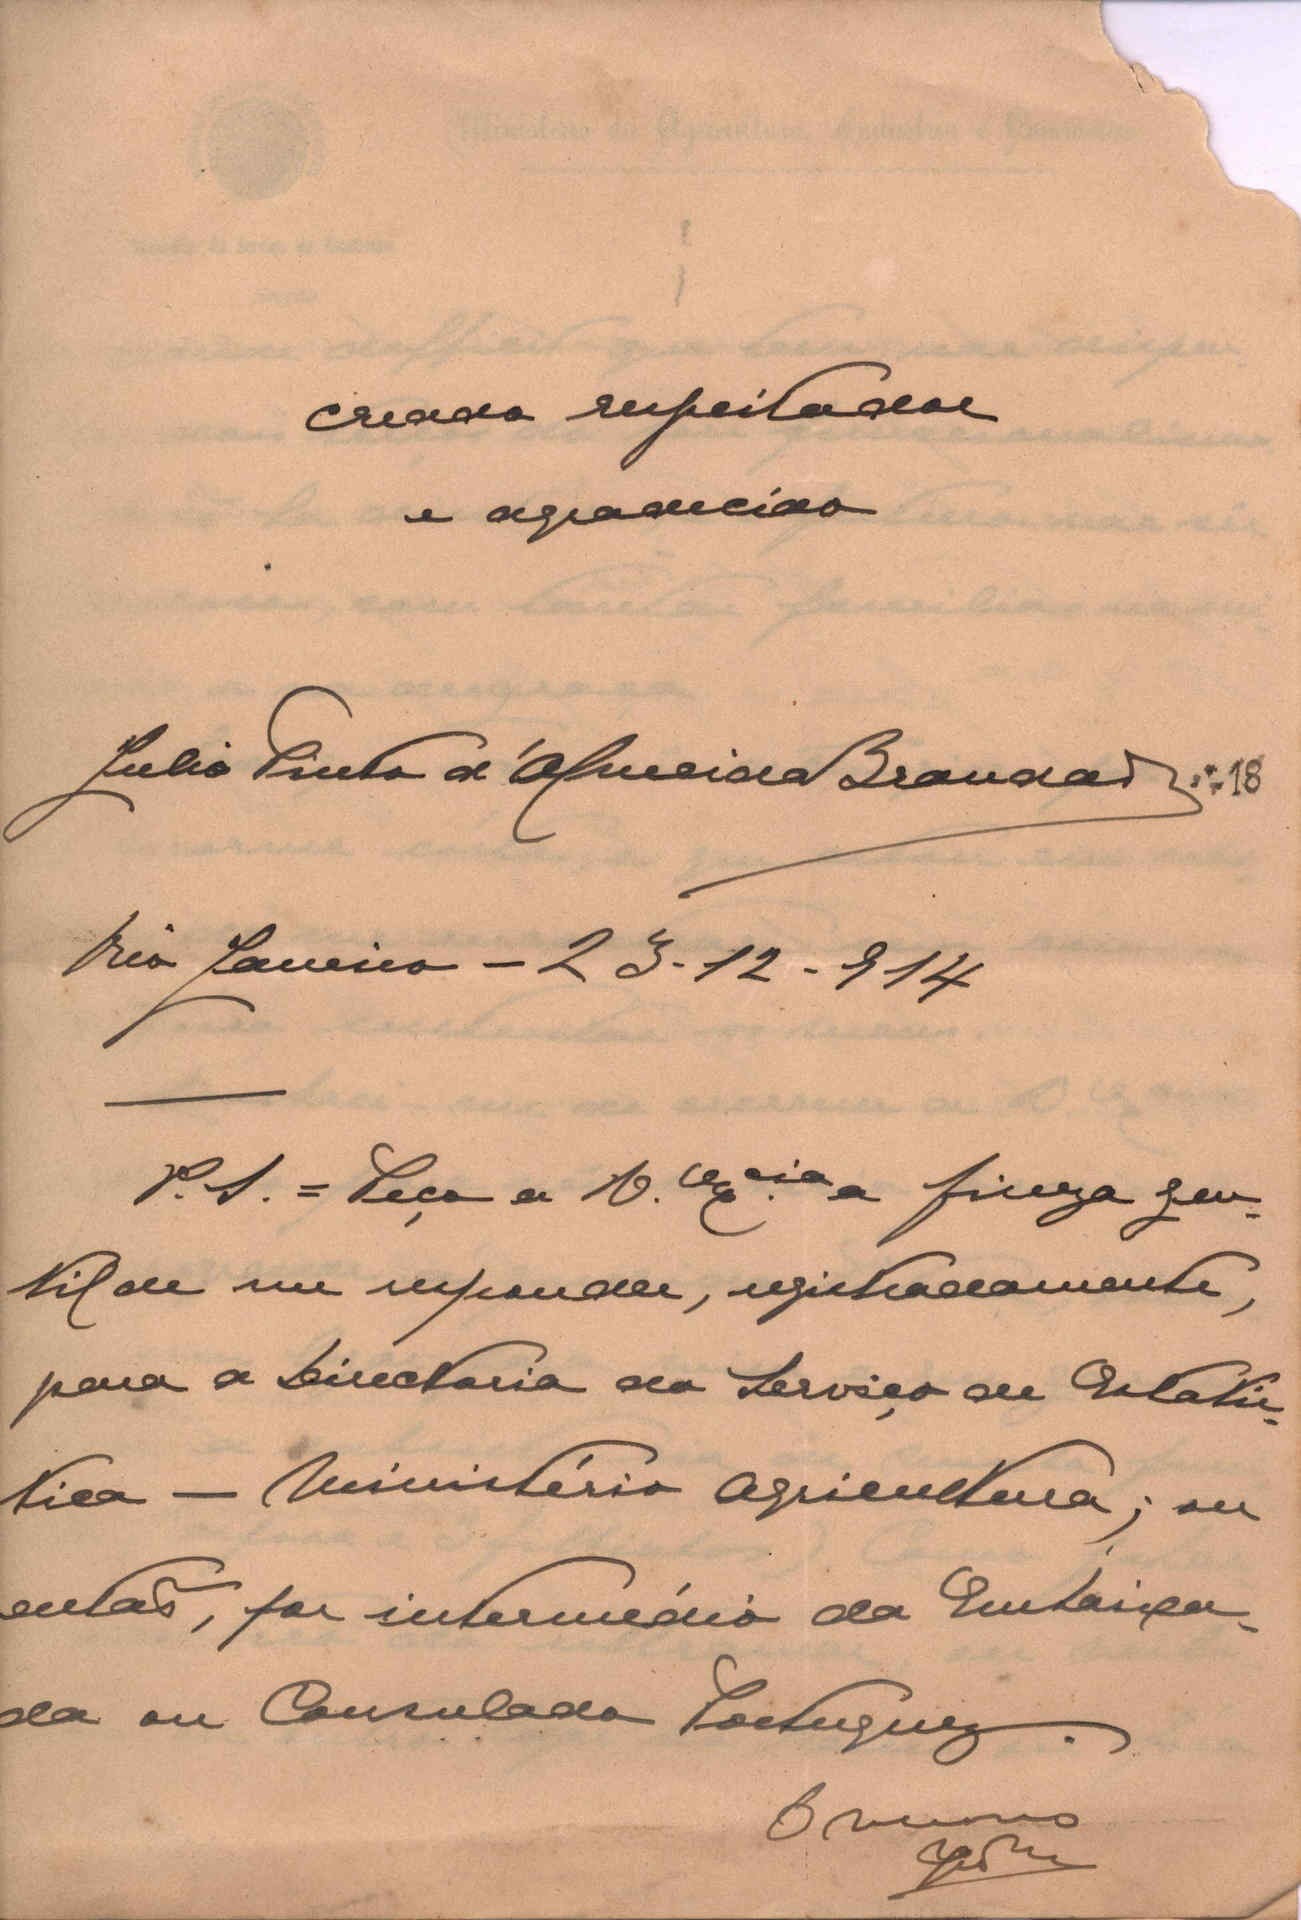 creado respeitador
e agradecido
Julio Pinto d'Almeida Brandaõ ∴ 18
Rio Janeiro - 23-12-914
P.S. = Peço a V. Ex.cia a fineza gen-
til de me responder, registradamente,
para a Directoria do Serviço de Estatis-
tica — Ministério Agricultura; ou
entaõ, por intermédio da Embaixa-
da ou Consulado Portuguez.
O mesmo